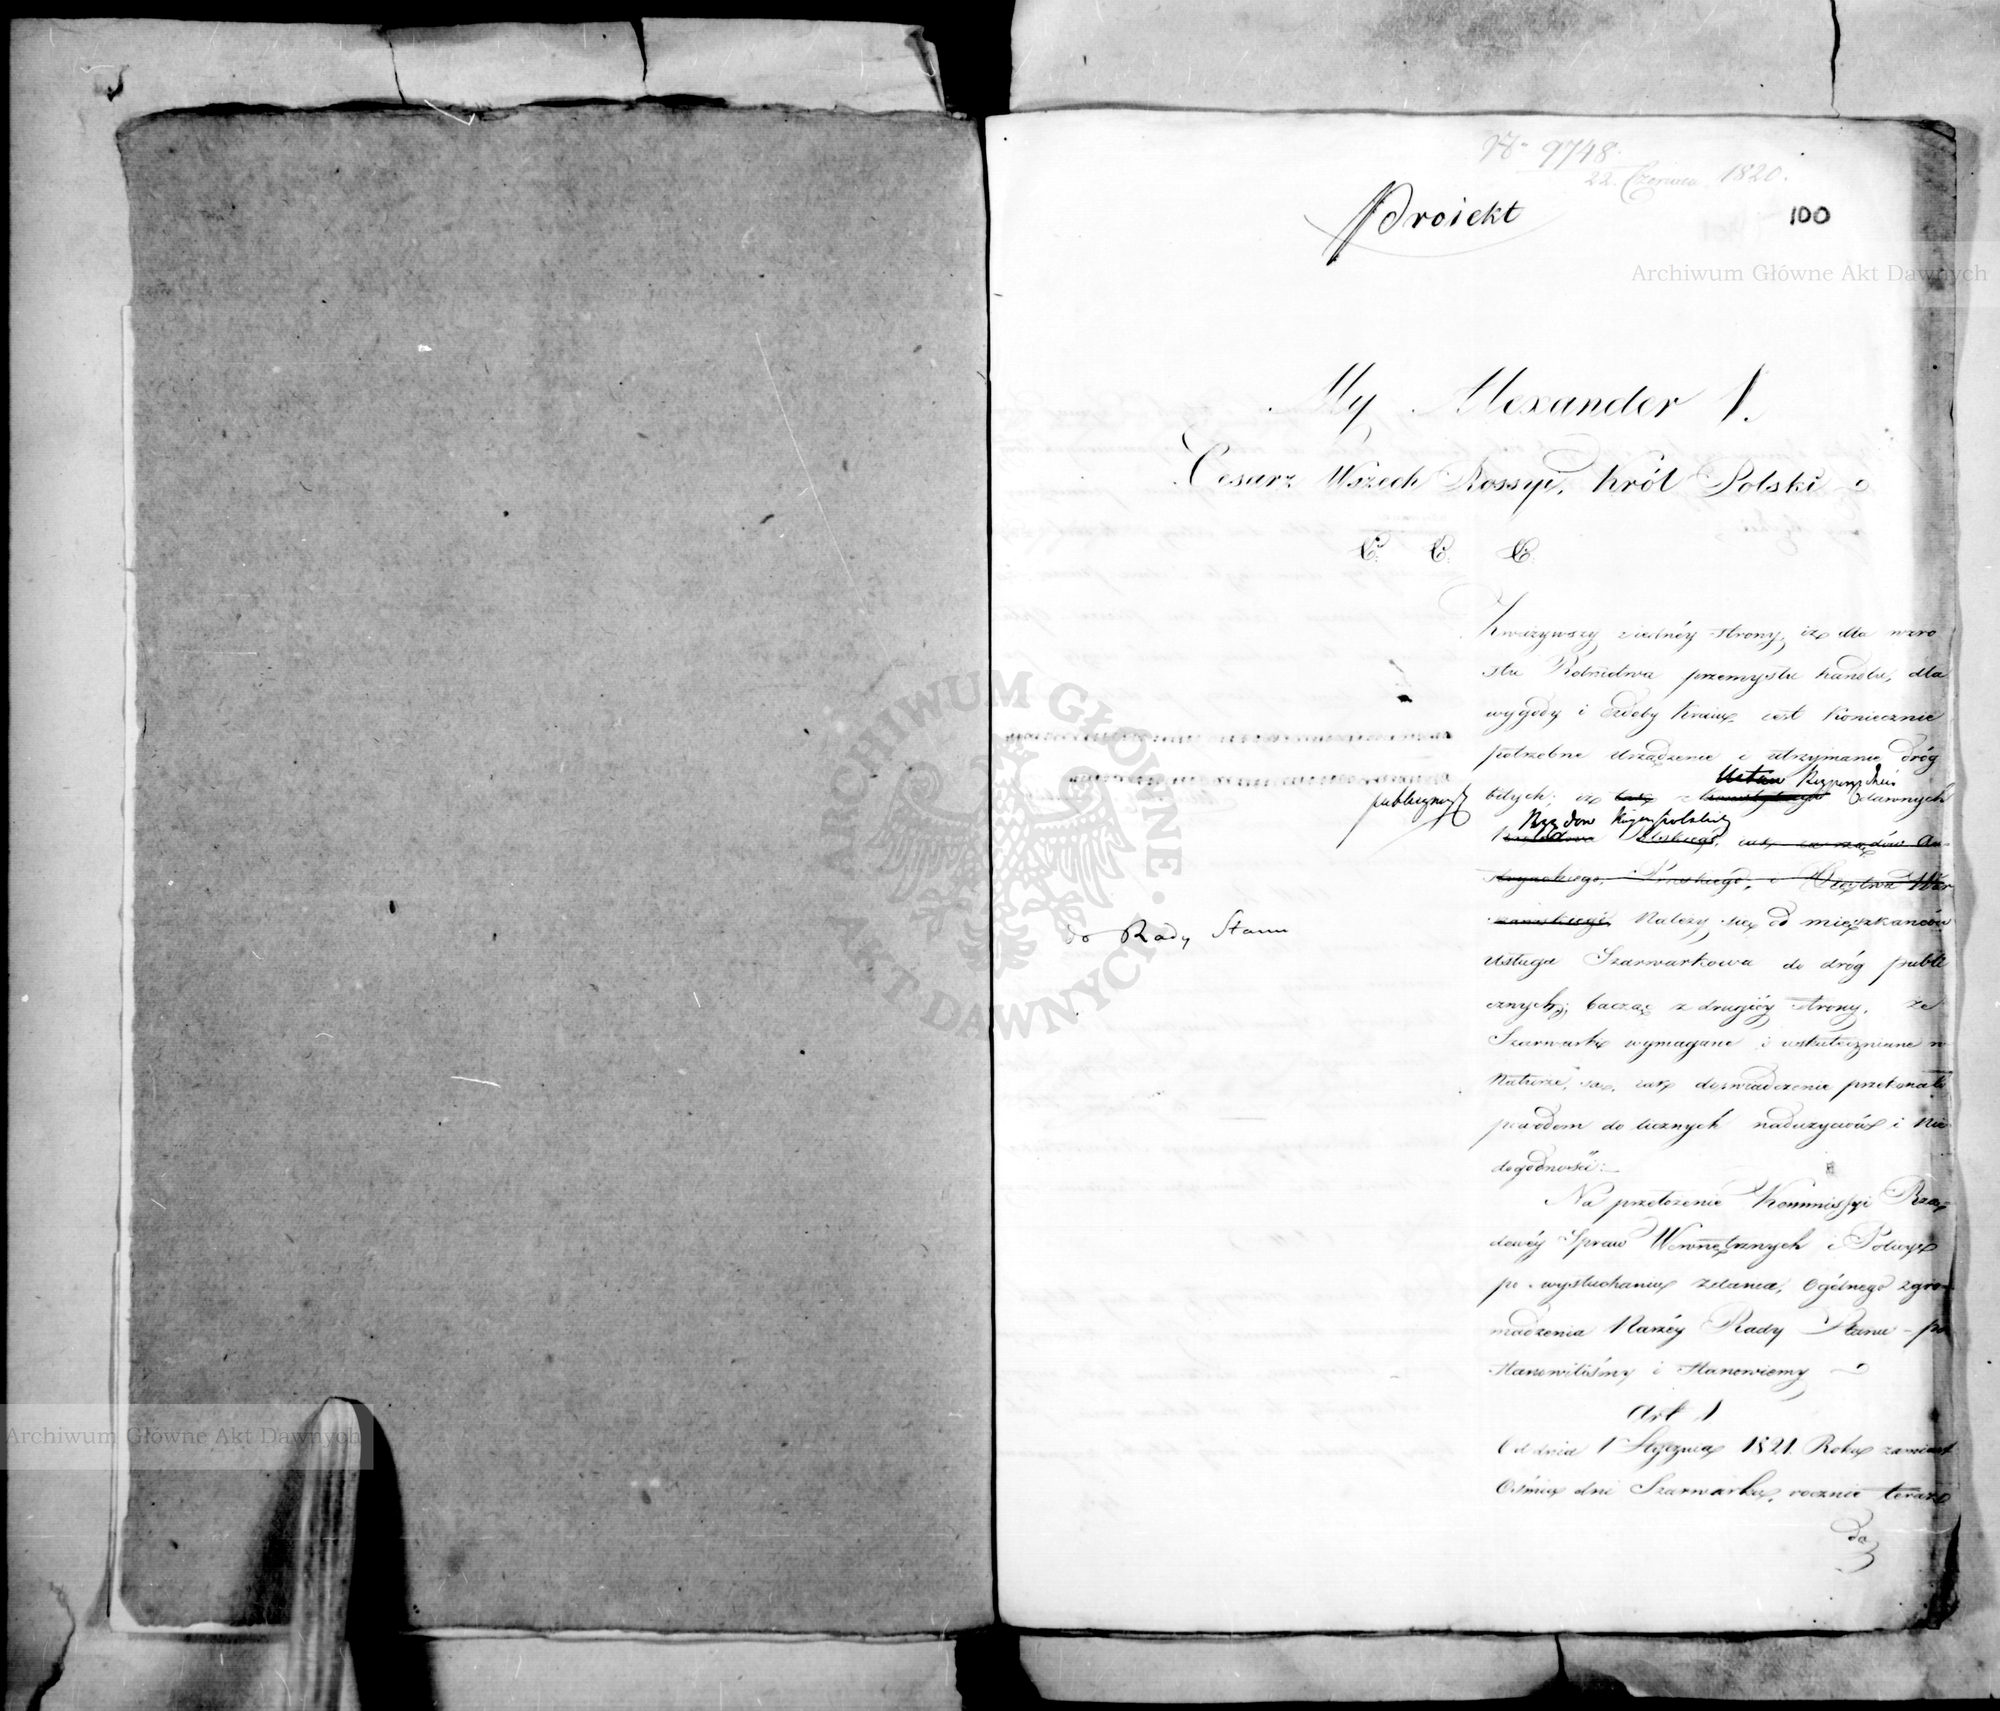 No 9748.
22. Czerwca 1820.
Proiekt
100
Archiwum Główne Akt Dawnych
My Alexander I.
Cesarz Wszech Rossyi, Król Polski
&. &. &.
Zważywszy z iednéy strony, iż dla wzro
stu Rolnictwa przemysłu handlu, dla
wygody i ozdoby Kraiu iest koniecznie
potrzebne urządzenie i utrzymanie dróg
Ustaw Rozporządzeń
publicznych
bitych; iż z dawnych
Rządow
Królestwa Polskiego, iak za rządów Au
stryackiego, Pruskiego, i Xięstwa War
szawskiego, Należy się od mieszkańców
do Rady Stanu
usługa Szarwarkowa do dróg publi
cznych; bacząc z drugiéy strony, że
Szarwarki wymagane i uskuteczniane w
Naturze, są, iak doświadczenie przekonało
powodem do licznych nadużyciów i Nie
dogodności:
Na przełożenie Kommissyi Rzą
dowéy Spraw Wewnętrznych i Policyi
po wysłuchaniu zdania, Ogólnego zgro
madzenia Naszéy Rady Stanu – po
stanowiliśmy i Stanowiemy
Art. 1
Od dnia 1 Stycznia 1821 Roku zamiast
Ośmiu dni Szarwarku, rocznie teraz
da
ARCHIWUM GŁÓWNE AKT DAWNYCH
Archiwum Główne Akt Dawnych